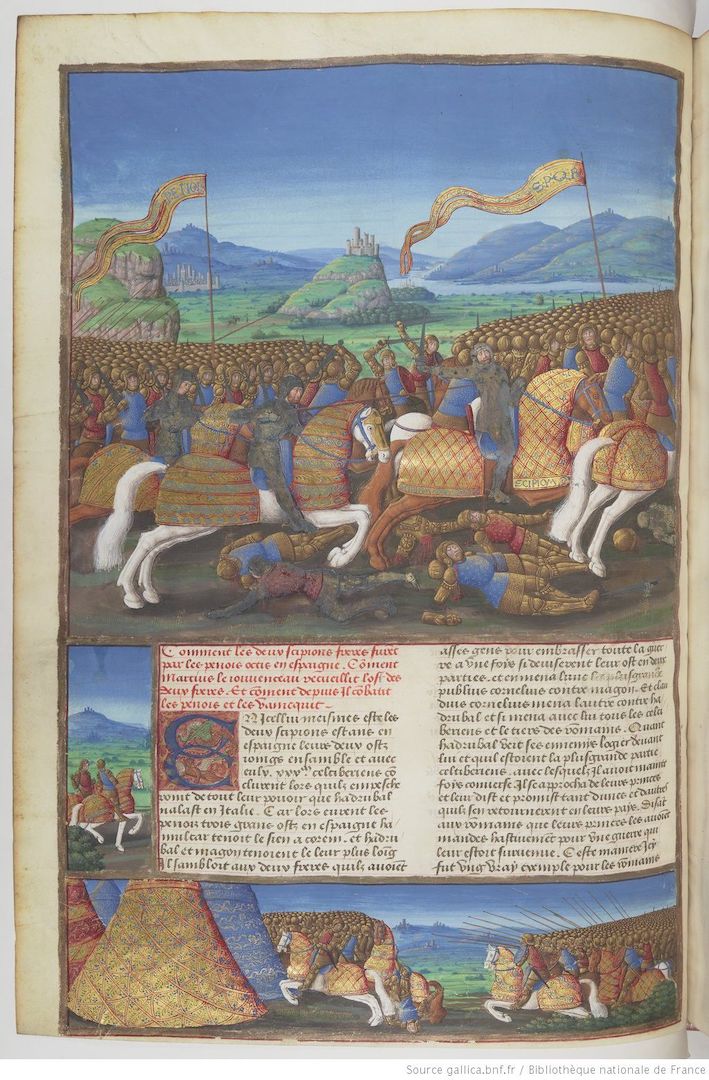 S·P·Q·R
SCIPION
Comment les deux scipions freres furẽt
par les penois occis en espaigne. Cõment
Marcius le iouuenceau recueillit lost des
deux freres. Et cõment depuis il cõbatit
les penois et les vaincquit.
EN icelluy meismes este les
deux scipions estans en
espaigne leurs deux ostz
ioings ensamble et auec
eulx. xxxᵐ celtiberiens cõ
clurent lors quilz empesche
roient de tout leur pouoir que hadrubal
nalast en Italie. Car lors eurent les
penois trois grans ostz en espaigne ha
milcar tenoit le sien a corem. et hadru
bal et magon tenoient le leur plus loing
Il sambloit aux deux freres quilz auoiẽt
asses gens pour embrasser toute la guer
re a vne fois si diuiserent leur ost en deux
parties. et en mena lune les plus grans
publius cornelius contre magon. et clau
dius cornelius mena lautre contre ha
drubal et si mena auec lui tous les celti
beriens et le tiers des rommains. Quant
hadrubal vert ses ennemis loger deuant
lui et quil estoient la plus grande partie
celtiberiens. auec lesquelz il auoit mainte
fois conuerse. Il se approcha de leurs princes
et leur dist et promist tant dunes et dautres
quilz sen retournerent en leurs pays. Disãt
aux rommains que leurs princes les auoient
mandes hastiuement pour vne guerre qui
leur estoit suruenue. Ceste maniere Icy
fut vng vray exemple pour les rommains
Source gallica.bnf.fr / Bibliothèque nationale de France